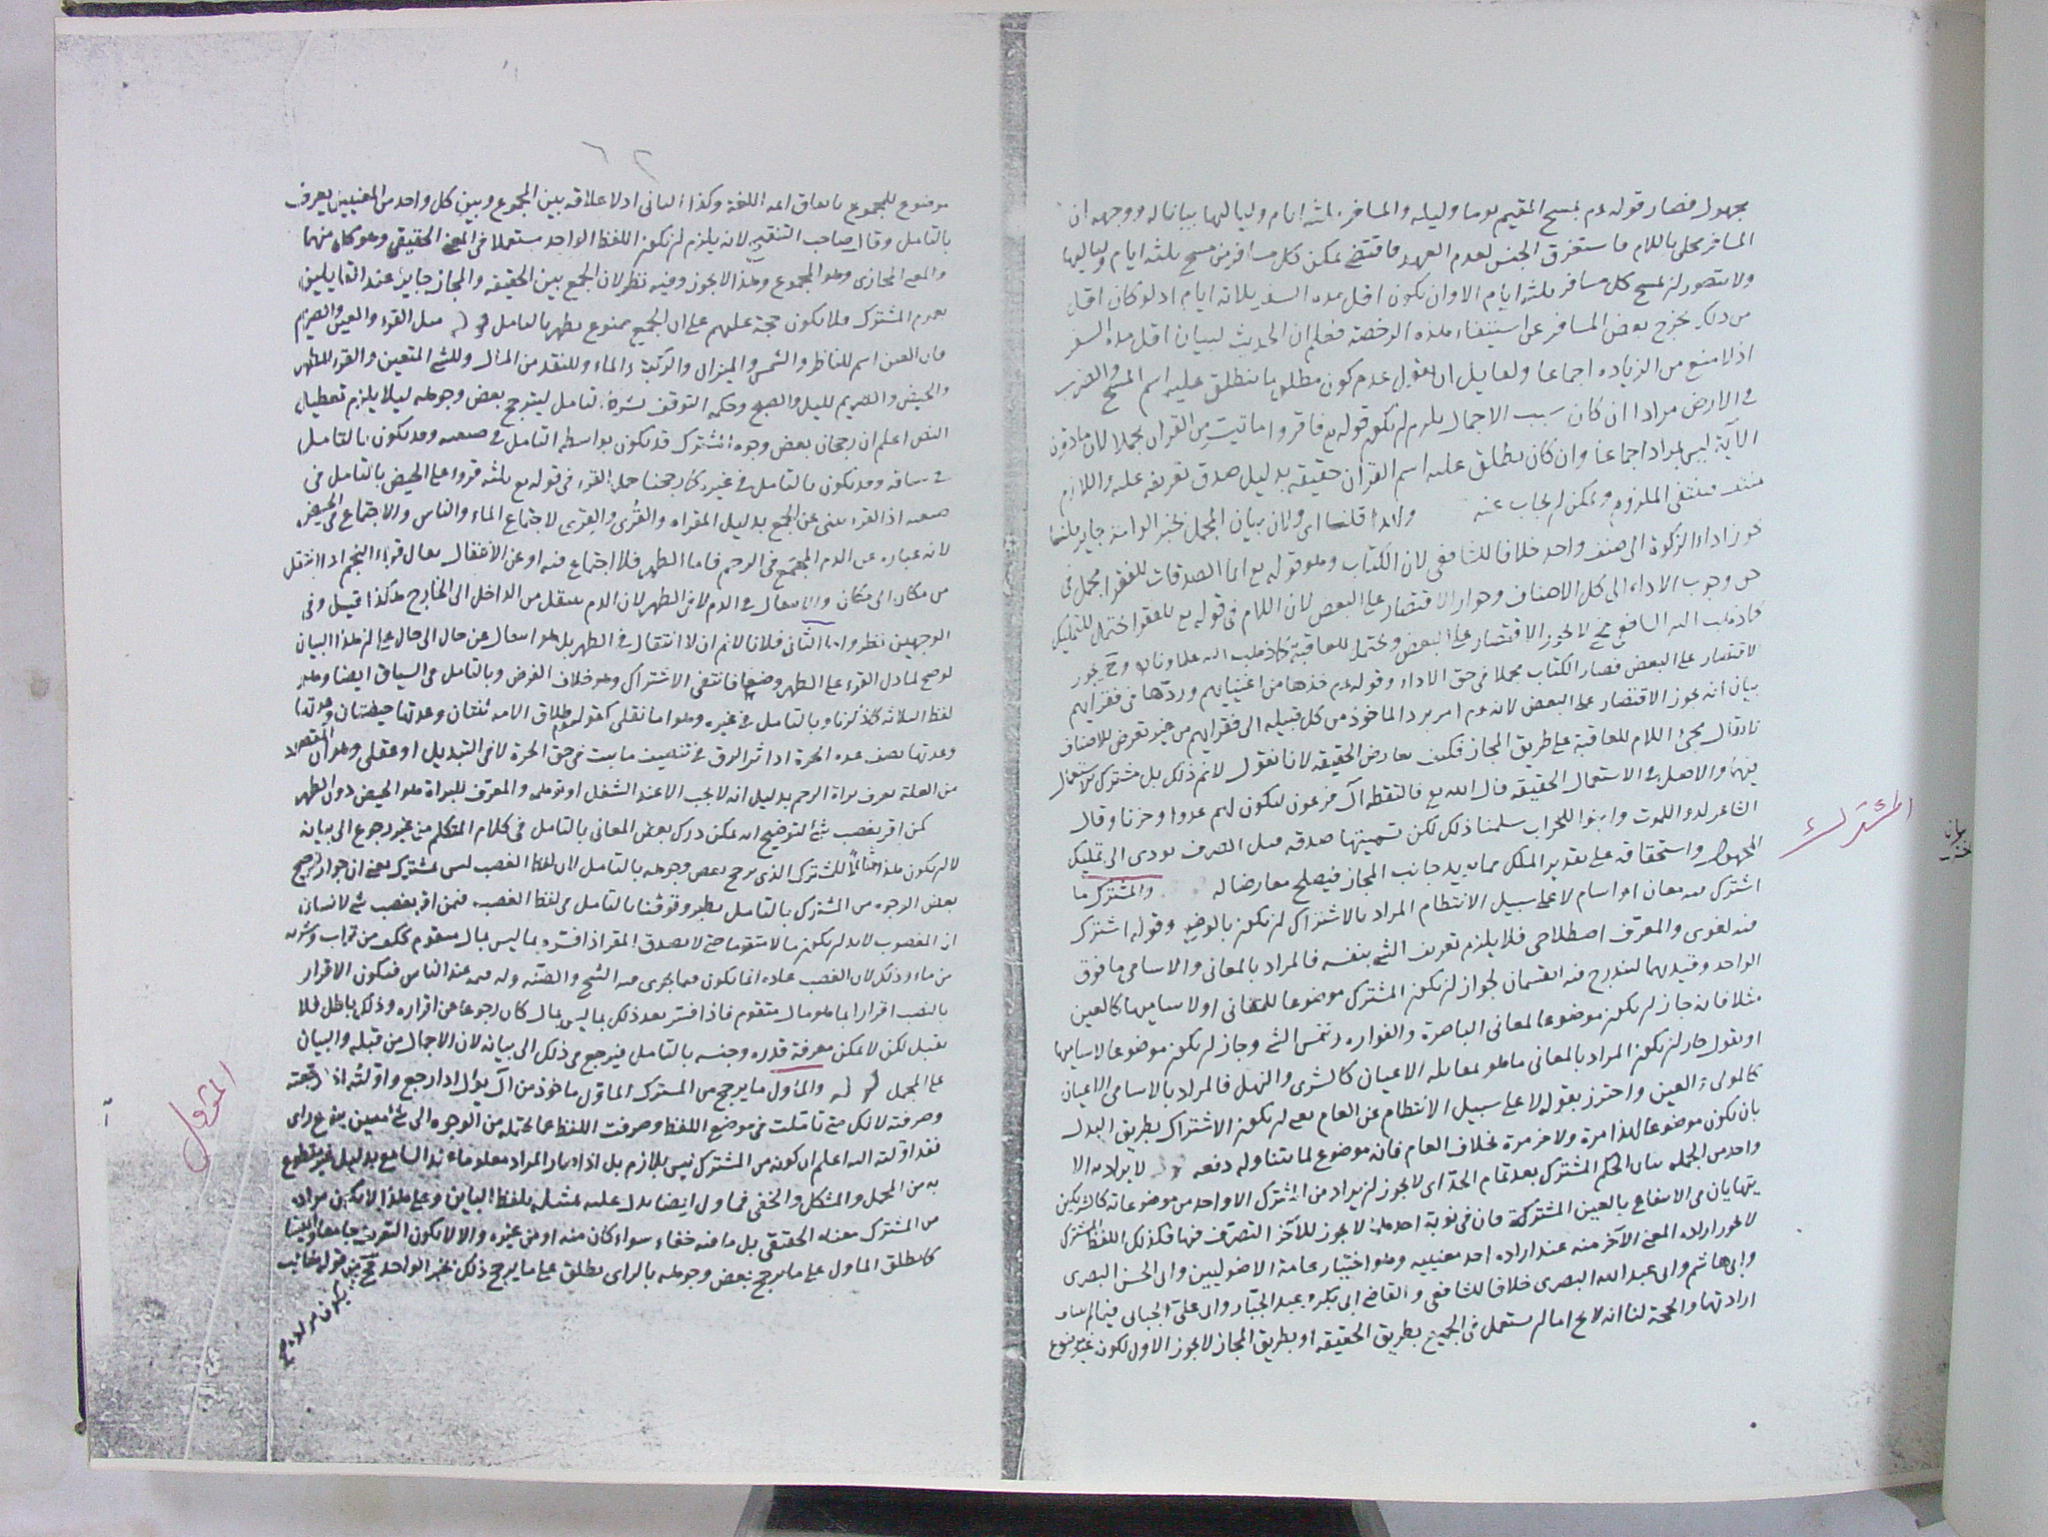 مجهول فصار قوله عم يمسح المقيم يوما وليله والمسافر ثلثه ايام ولياليها بيانا له ووجهه ان
المسافر محلى باللام فاستغرق الجنس لعدم العهد فاقتضى تمكن كل مسافر من مسح ثلثه ايام ولياليها
ولا يتصور ان يمسح كل مسافر ثلثه ايام الا وان يكون اقل مده السفر ثلاثه ايام اذ لو كان اقل
من ذلك يخرج بعض المسافر عن استيفاء هذه الرخصة فعلم ان الحديث لبيان اقل مده السفر
اذ لا منع من الزياده اجماعا ولقايل ان يقول عدم كون مطلق ما ينطلق عليه اسم المسح والضرب
في الارض مرادا ان كان سبب الاجمال يلزم ان يكون قوله تع فاقروا ما تيسر من القران مجملا لان مادون
الآية ليس بمراد اجماعا وان كان يطلق عليه اسم القران حقيقه بدليل صدق تعريفه عليه واللازم
منتف فينتفى الملزوم ويمكن ان يجاب عنه ولهذا قلنا اى ولان بيان المجمل بخبر الواحد جايز قلنا
يجوز اداء الزكوة الى صنف واحد خلافا للشافعى لان الكتاب وهو قوله تع انما الصدقات للفقرا مجمل فى
حق وجوب الاداء الى كل الاصناف وجواز الاقتصار على البعض لان اللام فى قوله تع للفقرا يحتمل للتمليك
كما ذهب اليه الشافعى فح لا يجوز الاقتصار على البعض ويحتمل للعاقبة كما ذهب اليه علماونا وح يجوز
الاقتصار على البعض فصار الكتاب مجملا فى حق الاداء وقوله عم خذها من اغنيايهم وردّها فى فقرايهم
بيان انه يجوز الاقتصار على البعض لانه عم امر برد الماخوذ من كل قبيله الى فقرايهم من غير تعرض للاصناف
لا يقال مجئ اللام للعاقبة على طريق المجاز فكيف يعارض الحقيقه لانا نقول لا نم ذلك بل مشترك للاستعمال
فيهما والاصل فى الاستعمال الحقيقه قال الله تع فالتقطه آل فرعون ليكون لهم عدوا وحزنا وقال
الشاعر لدوا للموت وابنوا للخراب سلمنا ذلك لكن تسميتها صدقه قبل الصرف يودى الى تمليك
المجهول واستحقاقه على تقدير الملك مما يويد جانب المجاز فيصلح معارضا له والمشترك ما
اشترك فيه معان او اسام لا على سبيل الانتظام المراد بالاشتراك ان يكون بالوضع وقوله اشترك
فيه لغوى والمعرف اصطلاحى فلا يلزم تعريف الشئ بنفسه فالمراد بالمعانى والاسامى ما فوق
الواحد وقيد بهما ليندرج فيه القسمان لجواز ان يكون المشترك موضوعا للمعانى او لاساميها كالعين
مثلا فانه جاز ان يكون موضوعا لمعانى الباصرة والفواره وشمس الشئ وجاز ان يكون موضوعا لاساميها
او يقول جاز ان يكون المراد بالمعانى ما هو يقابله الاعيان كالشرى والنهل فالمراد بالاسامى الاعيان
كالمولى والعين واحترز بقوله لا على سبيل الانتظام عن العام بمعنى ان يكون الاشتراك بطريق البدل
بان يكون موضوعا لهذا مرة ولآخر مرة بخلاف العام فانه موضوع لما يتناوله دفعه لا يراد به الا
واحد من الجمله بيان الحكم المشترك بعد تمام الحدّ اى لا يجوز ان يراد من المشترك الا واحد من موضوعاته كالشريكين
يتهايان فى الانتفاع بالعين المشتركة فان فى نوبة احدهما لا يجوز للآخر التصرّف فيها فكذلك اللفظ المشترك
لا يجوز اراده المعنى الآخر منه عند اراده احد معنييه وهو اختيار عامة الاصوليين وابى الحسن البصرى
وابى هاشم وابى عبد الله البصرى خلافا للشافعى والقاضى ابى بكر وعبد الجبّار وابى علىّ الجبائى فيما لم يتناف
ارادتها والحجة لنا انه لا يخ اما ان يستعمل فى الجميع بطريق الحقيقه او بطريق المجاز لا يجوز الاول لكونه غير موضوع
المشترك
٦٢
موضوع للمجموع باتفاق ايمه اللغة وكذا الثانى اذ لا علاقه بين المجموع وبين كل واحد من المعنيين يعرف
بالتامل وقال صاحب التنقيح لانه يلزم ان يكون اللفظ الواحد مستعملا فى المعنى الحقيقى وهو كل منهما
والمعنى المجازى وهو المجموع وهذا لا يجوز وفيه نظر لان الجمع بين الحقيقه والمجاز جايز عند القايلين
بعموم المشترك فلا يكون حجة عليهم على ان الجمع ممنوع يظهر بالتامل قوله مثل القرء والعين والصريم
فان العين اسم للناظر والشمس والميزان والركبة والماء وللنقد من المال وللشئ المتعين والقرء للطهر
والحيض والصريم لليل والصبح وحكمه التوقف بشرط تامل ليترجح بعض وجوهه ليلا يلزم تعطيل
النص اعلم ان رجحان بعض وجوه المشترك قد يكون بواسطه التامل فى صيغته وقد يكون بالتامل
فى سياقه وقد يكون بالتامل فى غيره كما رجحنا حمل القرء فى قوله تع ثلثه قروء على الحيض بالتامل فى
صيغته اذ القرء ينبى عن الجمع بدليل المقراه والقُرى والقريه لاجتماع الماء والناس والاجتماع فى الحيض
لانه عباره عن الدم المجتمع فى الرحم فاما الطهر فلا اجتماع فيه او عن الانتقال يقال قرء النجم اذا انتقل
من مكان الى مكان والانتقال فى الدم لا فى الطهر لان الدم ينتقل من الداخل الى الخارج هكذا قيل وفى
الوجهين نظر واما الثانى فلانا لا نم ان لا انتقال فى الطهر بل هو انتقال من حال الى حال على ان هذا البيان
لو صح لما دل القرء على الطهر وضعا فانتفى الاشتراك وهو خلاف الغرض وبالتامل فى السياق ايضا وهو
لفظ الثلاثه كما ذكرنا وبالتامل فى غيره وهو اما نقلى كقوله عم طلاق الامه ثنتان وعدتها حيضتان وعدتها
وعدتها نصف عده الحرة اذ اثر الرق فى تنصيف ما يثبت فى حق الحرة لا فى التبديل او عقلى وهو ان المقصود
من العدة تعرف براة الرحم بدليل انه لا يجب الا عند الشغل او توهمه والمعرف للبراة هو الحيض دون الطهر
كمن اقر بغصب شئ التوضيح انه يمكن درك بعض المعانى بالتامل فى كلام المتكلم من غير رجوع الى بيانه
لا ان يكون هذا مثالًا للمشترك الذى يرجح بعض وجوهه بالتامل لان لفظ الغصب ليس بمشترك يعنى ان جواز ترجيح
بعض الوجوه من المشترك بالتامل نظير وقوفنا بالتامل فى لفظ الغصب فمن اقر بغصب شئ لانسان
ان المغصوب لابد ان يكون مالا متقوما حتى لا يصدق المقر اذا فسّره بما ليس بمال متقوم ككف من تراب وشربه
من ماء وذلك لان الغصب عاده انما يكون فيما يجرى فيه الشح والضنّه وله قيمه عند الناس فيكون الاقرار
بالغصب اقرارا بما هو مال متقوم فاذا فسّر بعد ذلك بما ليس بمال كان رجوعا عن اقراره وذلك باطل فلا
يقبل لكن لا يمكن معرفة قدره وجنسه بالتامل فيرجع فى ذلك الى بيانه لان الاجمال من قبله والبيان
على المجمل قوله والماول ما يرجح من المشترك الماوّل ماخوذ من آل يؤل اذا رجع واوّلته اذا رجعته
وصرفته لانك متى تاملت فى موضع اللفظ وصرفت اللفظ عما يحتمله من الوجوه الى شئ معين بنوع راى
فقد اوّلته اليه اعلم ان كونه من المشترك ليس بلازم بل اذا صار المراد معلوما عند السامع بدليل غير مقطوع
به من المجمل والمشكل والخفى فماول ايضا
من المشترك معناه الحقيقى بل ما فيه خفاء سواء كان منه او من غيره والا لا يكون التعريف جامعا وايضا
كما يطلق الماول على ما يرجح بعض وجوهه بالراى يطلق على ما يرجح ذلك بخبر الواحد فح
المؤول